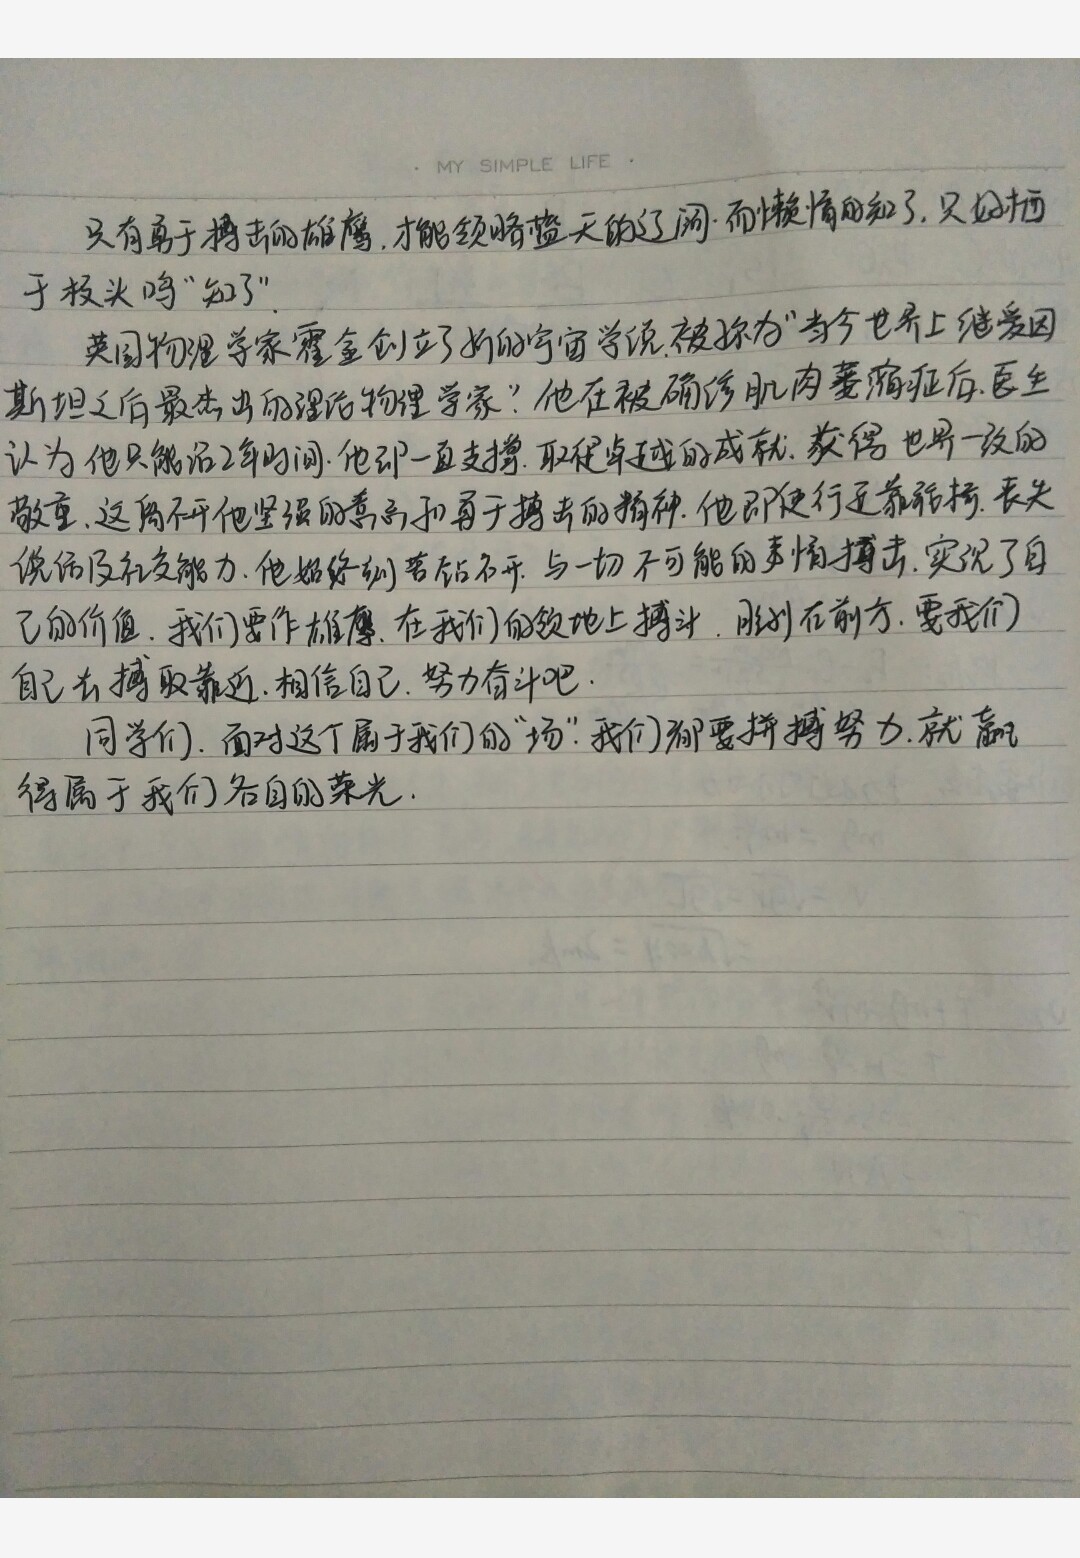 · MY SIMPLE LIFE ·
只有勇于搏击的雄鹰,才能领略蓝天的辽阔.而懒惰的知了,只好栖
于枝头鸣“知了”.
英国物理学家霍金创立了新的宇宙学说,被称为“当今世界上继爱因
斯坦之后最杰出的理论物理学家”.他在被确诊肌肉萎缩症后,医生
认为他只能活2年时间.他却一直支撑,取得卓越的成就,获得世界一致的
敬重,这离不开他坚强的意志和勇于搏击的精神.他即使行走靠轮椅,丧失
说话及社交能力,他始终刻苦钻研,与一切不可能的事情搏击,实现了自
己的价值,我们要作雄鹰,在我们的领地上搏斗,胜利在前方,要我们
自己去搏取靠近,相信自己,努力奋斗吧.
同学们,面对这个属于我们的“场”.我们都要拼搏努力,就赢
得属于我们各自的荣光.